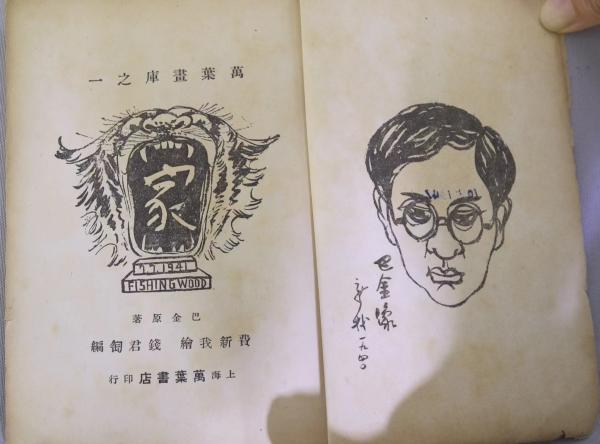 萬葉畫庫之一
家
7.7.1941
FISHINGWOOD
巴金原著
費新我繪 錢君匋編
上海萬葉書店印行
巴金像
新我一九四〇